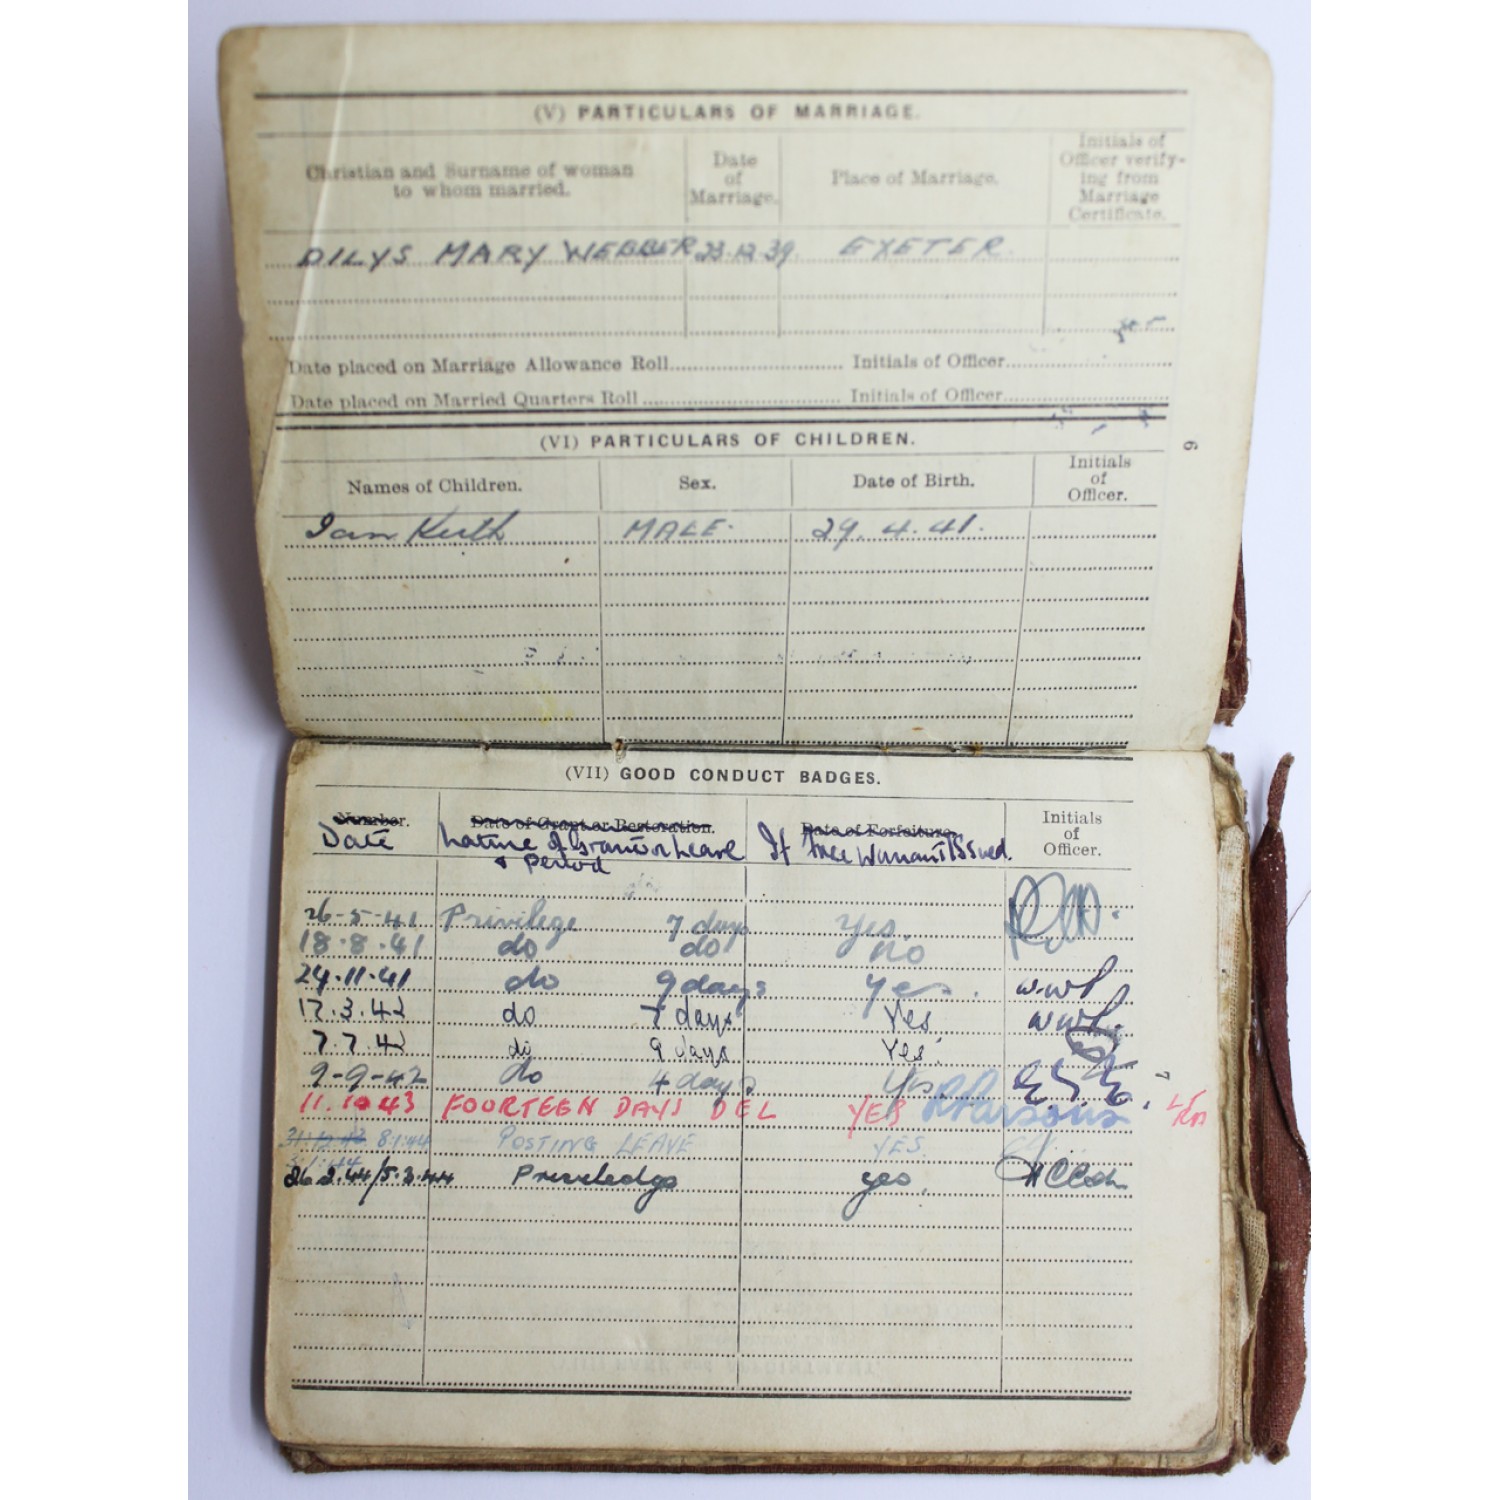 (V) PARTICULARS OF MARRIAGE.
Christian and Surname of woman to whom married. Date of Marriage. Place of Marriage. Initials of Officer verify-ing from Marriage Certificate.
DILYS MARY WEBBER 23.12.39 EXETER.
Date placed on Marriage Allowance Roll Initials of Officer
Date placed on Married Quarters Roll Initials of Officer
(VI) PARTICULARS OF CHILDREN.
6
Names of Children. Sex. Date of Birth. Initials of Officer.
Ian Keith MALE. 29.4.41.
(VII) GOOD CONDUCT BADGES.
Number. Date of Grant or Restoration. Date of Forfeiture. Initials of Officer.
Date Nature of Grant or Leave & period If free Warrant Issued.
26-5-41 Privilege 7 days yes
18.8.41 do do no
24.11.41 do 9 days yes. W.W.P.
17.3.42 do 7 days Yes W.W.P.
7.7.42 do 9 days Yes.
9-9-42 do 4 days Yes.
7
11.10.43 FOURTEEN DAYS DEL YES RParsons
31.12.43 8.1.44 POSTING LEAVE YES.
26.2.44/5.3.44 Priveledge yes.